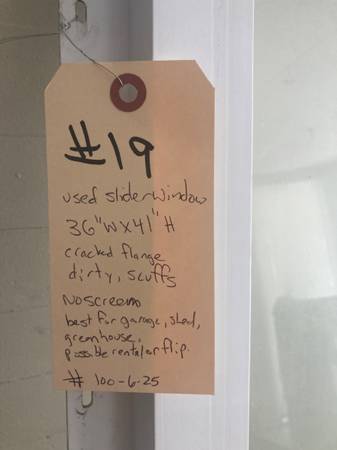 #19
used slider window
36"W x 41" H
cracked flange
dirty, scuffs
No screen
best for garage, shed,
greenhouse,
possible rental or flip.
# 100-6-25